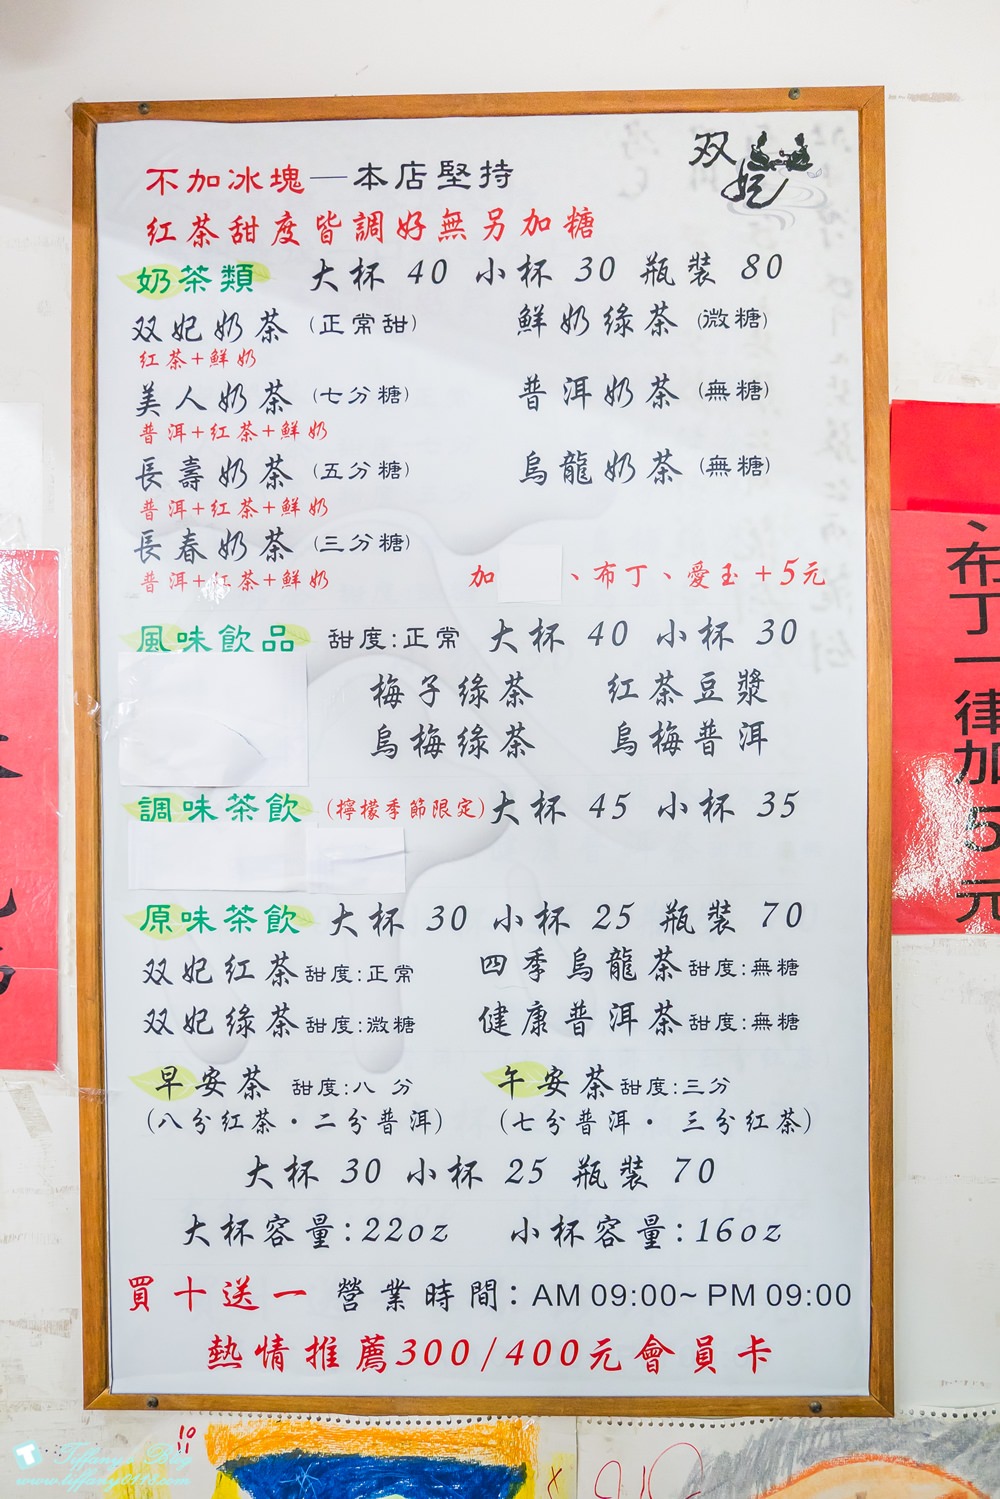 双妃
不加冰塊—本店堅持
紅茶甜度皆調好無另加糖
奶茶類 大杯 40 小杯 30 瓶裝 80
双妃奶茶 (正常甜) 鮮奶綠茶 (微糖)
紅茶+鮮奶
美人奶茶 (七分糖) 普洱奶茶 (無糖)
普洱+紅茶+鮮奶
長壽奶茶 (五分糖) 烏龍奶茶 (無糖)
普洱+紅茶+鮮奶
長春奶茶 (三分糖)
普洱+紅茶+鮮奶 加 、布丁、愛玉+5元
風味飲品 甜度:正常 大杯 40 小杯 30
梅子綠茶 紅茶豆漿
烏梅綠茶 烏梅普洱
調味茶飲 (檸檬季節限定) 大杯 45 小杯 35
原味茶飲 大杯 30 小杯 25 瓶裝 70
双妃紅茶 甜度:正常 四季烏龍茶 甜度:無糖
双妃綠茶 甜度:微糖 健康普洱茶 甜度:無糖
早安茶 甜度:八分 午安茶 甜度:三分
(八分紅茶·二分普洱) (七分普洱·三分紅茶)
大杯 30 小杯 25 瓶裝 70
大杯容量:22oz 小杯容量:16oz
買十送一 營業時間: AM 09:00~ PM 09:00
熱情推薦300/400元會員卡
布丁一律加5元
10
11
Tiffany's Blog